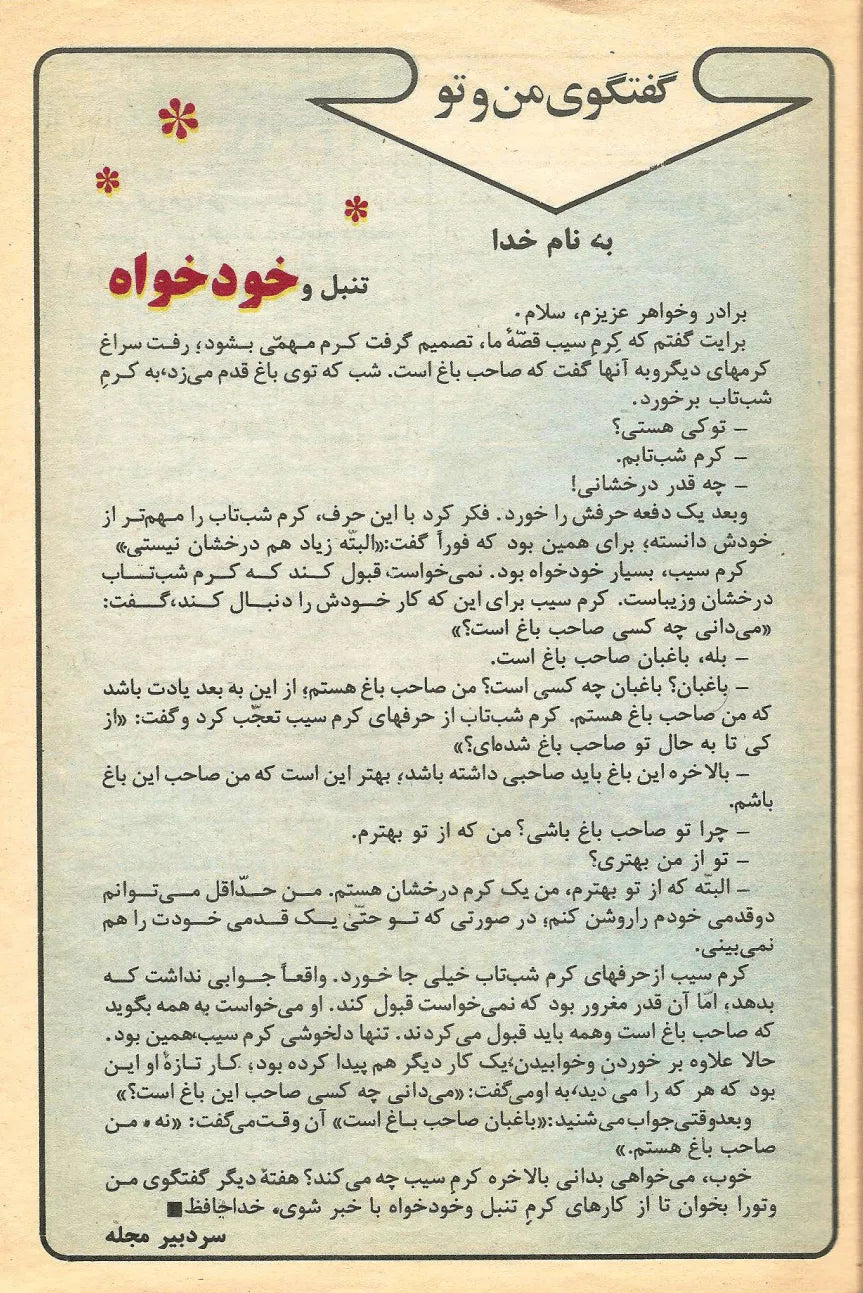 گفتگوی من و تو
به نام خدا
تنبل و خودخواه
برادر وخواهر عزیزم، سلام.
برایت گفتم که کِرمِ سیب قصّهٔ ما، تصمیم گرفت کرم مهمّی بشود؛ رفت سراغ
کرمهای دیگروبه آنها گفت که صاحب باغ است. شب که توی باغ قدم می‌زد،به کرمِ
شب‌تاب برخورد.
– توکی هستی؟
– کرم شب‌تابم.
– چه قدر درخشانی!
وبعد یک دفعه حرفش را خورد. فکر کرد با این حرف، کرم شب‌تاب را مهم‌تر از
خودش دانسته؛ برای همین بود که فوراً گفت:«البتّه زیاد هم درخشان نیستی»
کرم سیب، بسیار خودخواه بود. نمی‌خواست قبول کند که کرم شب‌تاب
درخشان وزیباست. کرم سیب برای این که کار خودش را دنبال کند،گفت:
«می‌دانی چه کسی صاحب باغ است؟»
– بله، باغبان صاحب باغ است.
– باغبان؟ باغبان چه کسی است؟ من صاحب باغ هستم؛ از این به بعد یادت باشد
که من صاحب باغ هستم. کرم شب‌تاب از حرفهای کرم سیب تعجّب کرد وگفت: «از
کی تا به حال تو صاحب باغ شده‌ای؟»
– بالاخره این باغ باید صاحبی داشته باشد؛ بهتر این است که من صاحب این باغ
باشم.
– چرا تو صاحب باغ باشی؟ من که از تو بهترم.
– تو از من بهتری؟
– البتّه که از تو بهترم، من یک کرم درخشان هستم. من حدّاقل می‌توانم
دوقدمی خودم راروشن کنم؛ در صورتی که تو حتّیٰ یک قدمی خودت را هم
نمی‌بینی.
کرم سیب ازحرفهای کرم شب‌تاب خیلی جا خورد. واقعاً جوابی نداشت که
بدهد، امّا آن قدر مغرور بود که نمی‌خواست قبول کند. او می‌خواست به همه بگوید
که صاحب باغ است وهمه باید قبول می‌کردند. تنها دلخوشی کرم سیب،همین بود.
حالا علاوه بر خوردن وخوابیدن،یک کار دیگر هم پیدا کرده بود؛ کار تازهٔ او این
بود که هر که را می دید،به اومی‌گفت: «می‌دانی چه کسی صاحب این باغ است؟»
وبعدوقتی‌جواب‌می‌شنید:«باغبان صاحب باغ است» آن وقت‌می‌گفت: «نه. من
صاحب باغ هستم.»
خوب، می‌خواهی بدانی بالاخره کرمِ سیب چه می‌کند؟ هفتهٔ دیگر گفتگوی من
وتورا بخوان تا از کارهای کرمِ تنبل وخودخواه با خبر شوی. خداحافظ■
سردبیر مجله